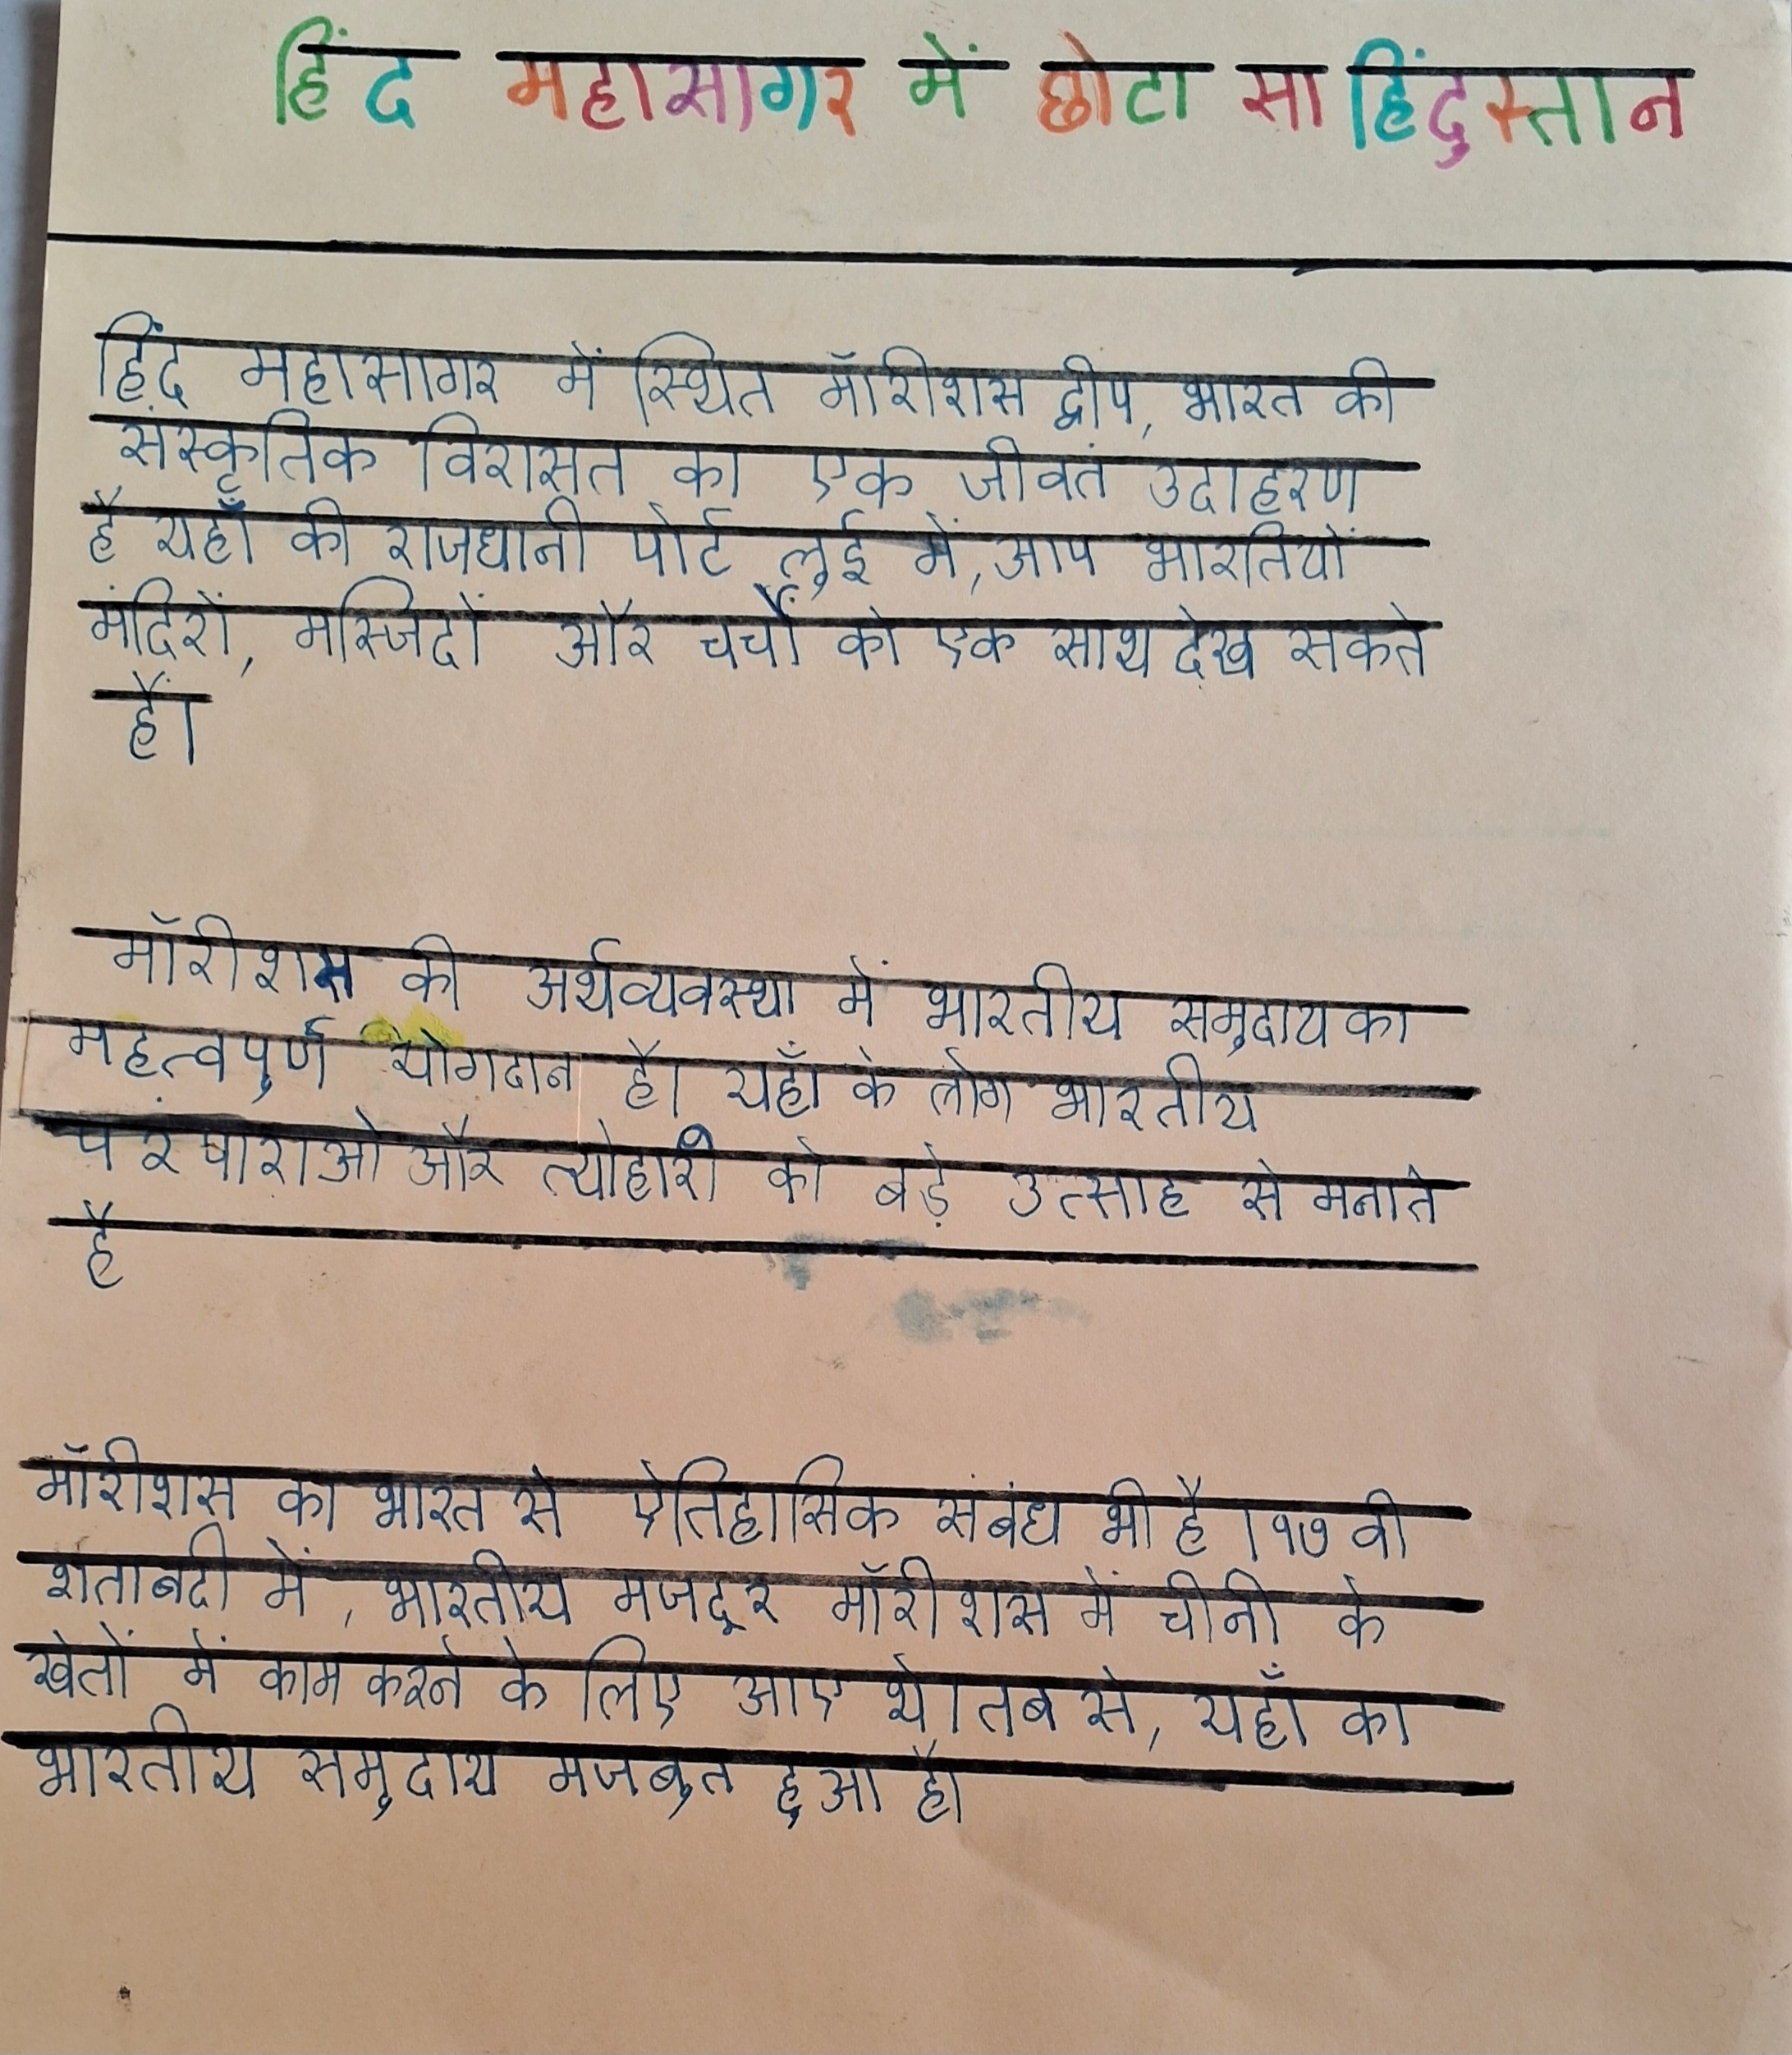 हिंद महासागर में छोटा सा हिंदुस्तान
हिंद महासागर में स्थित मॉरीशस द्वीप, भारत की
संस्कृतिक विरासत का एक जीवतं उदाहरण
है यहाँ की राजधानी पोर्ट लुई में, आप भारतियों
मंदिरों, मस्जिदों और चर्चों को एक साथ देख सकते
हैं।
मॉरीशस की अर्थव्यवस्था में भारतीय समुदाय का
महत्वपुर्ण योगदान है। यहाँ के लोग भारतीय
और त्योहारों को बड़े उत्साह से मनाते
है
मॉरीशस का भारत से ऐतिहासिक संबंध भी है । १७ वी
शताबदी में, भारतीय मजदूर मॉरीशस में चीनी के
खेतों में काम करने के लिए आए थे। तब से, यहाँ का
भारतीय समुदाय मजबुत हुआ है।